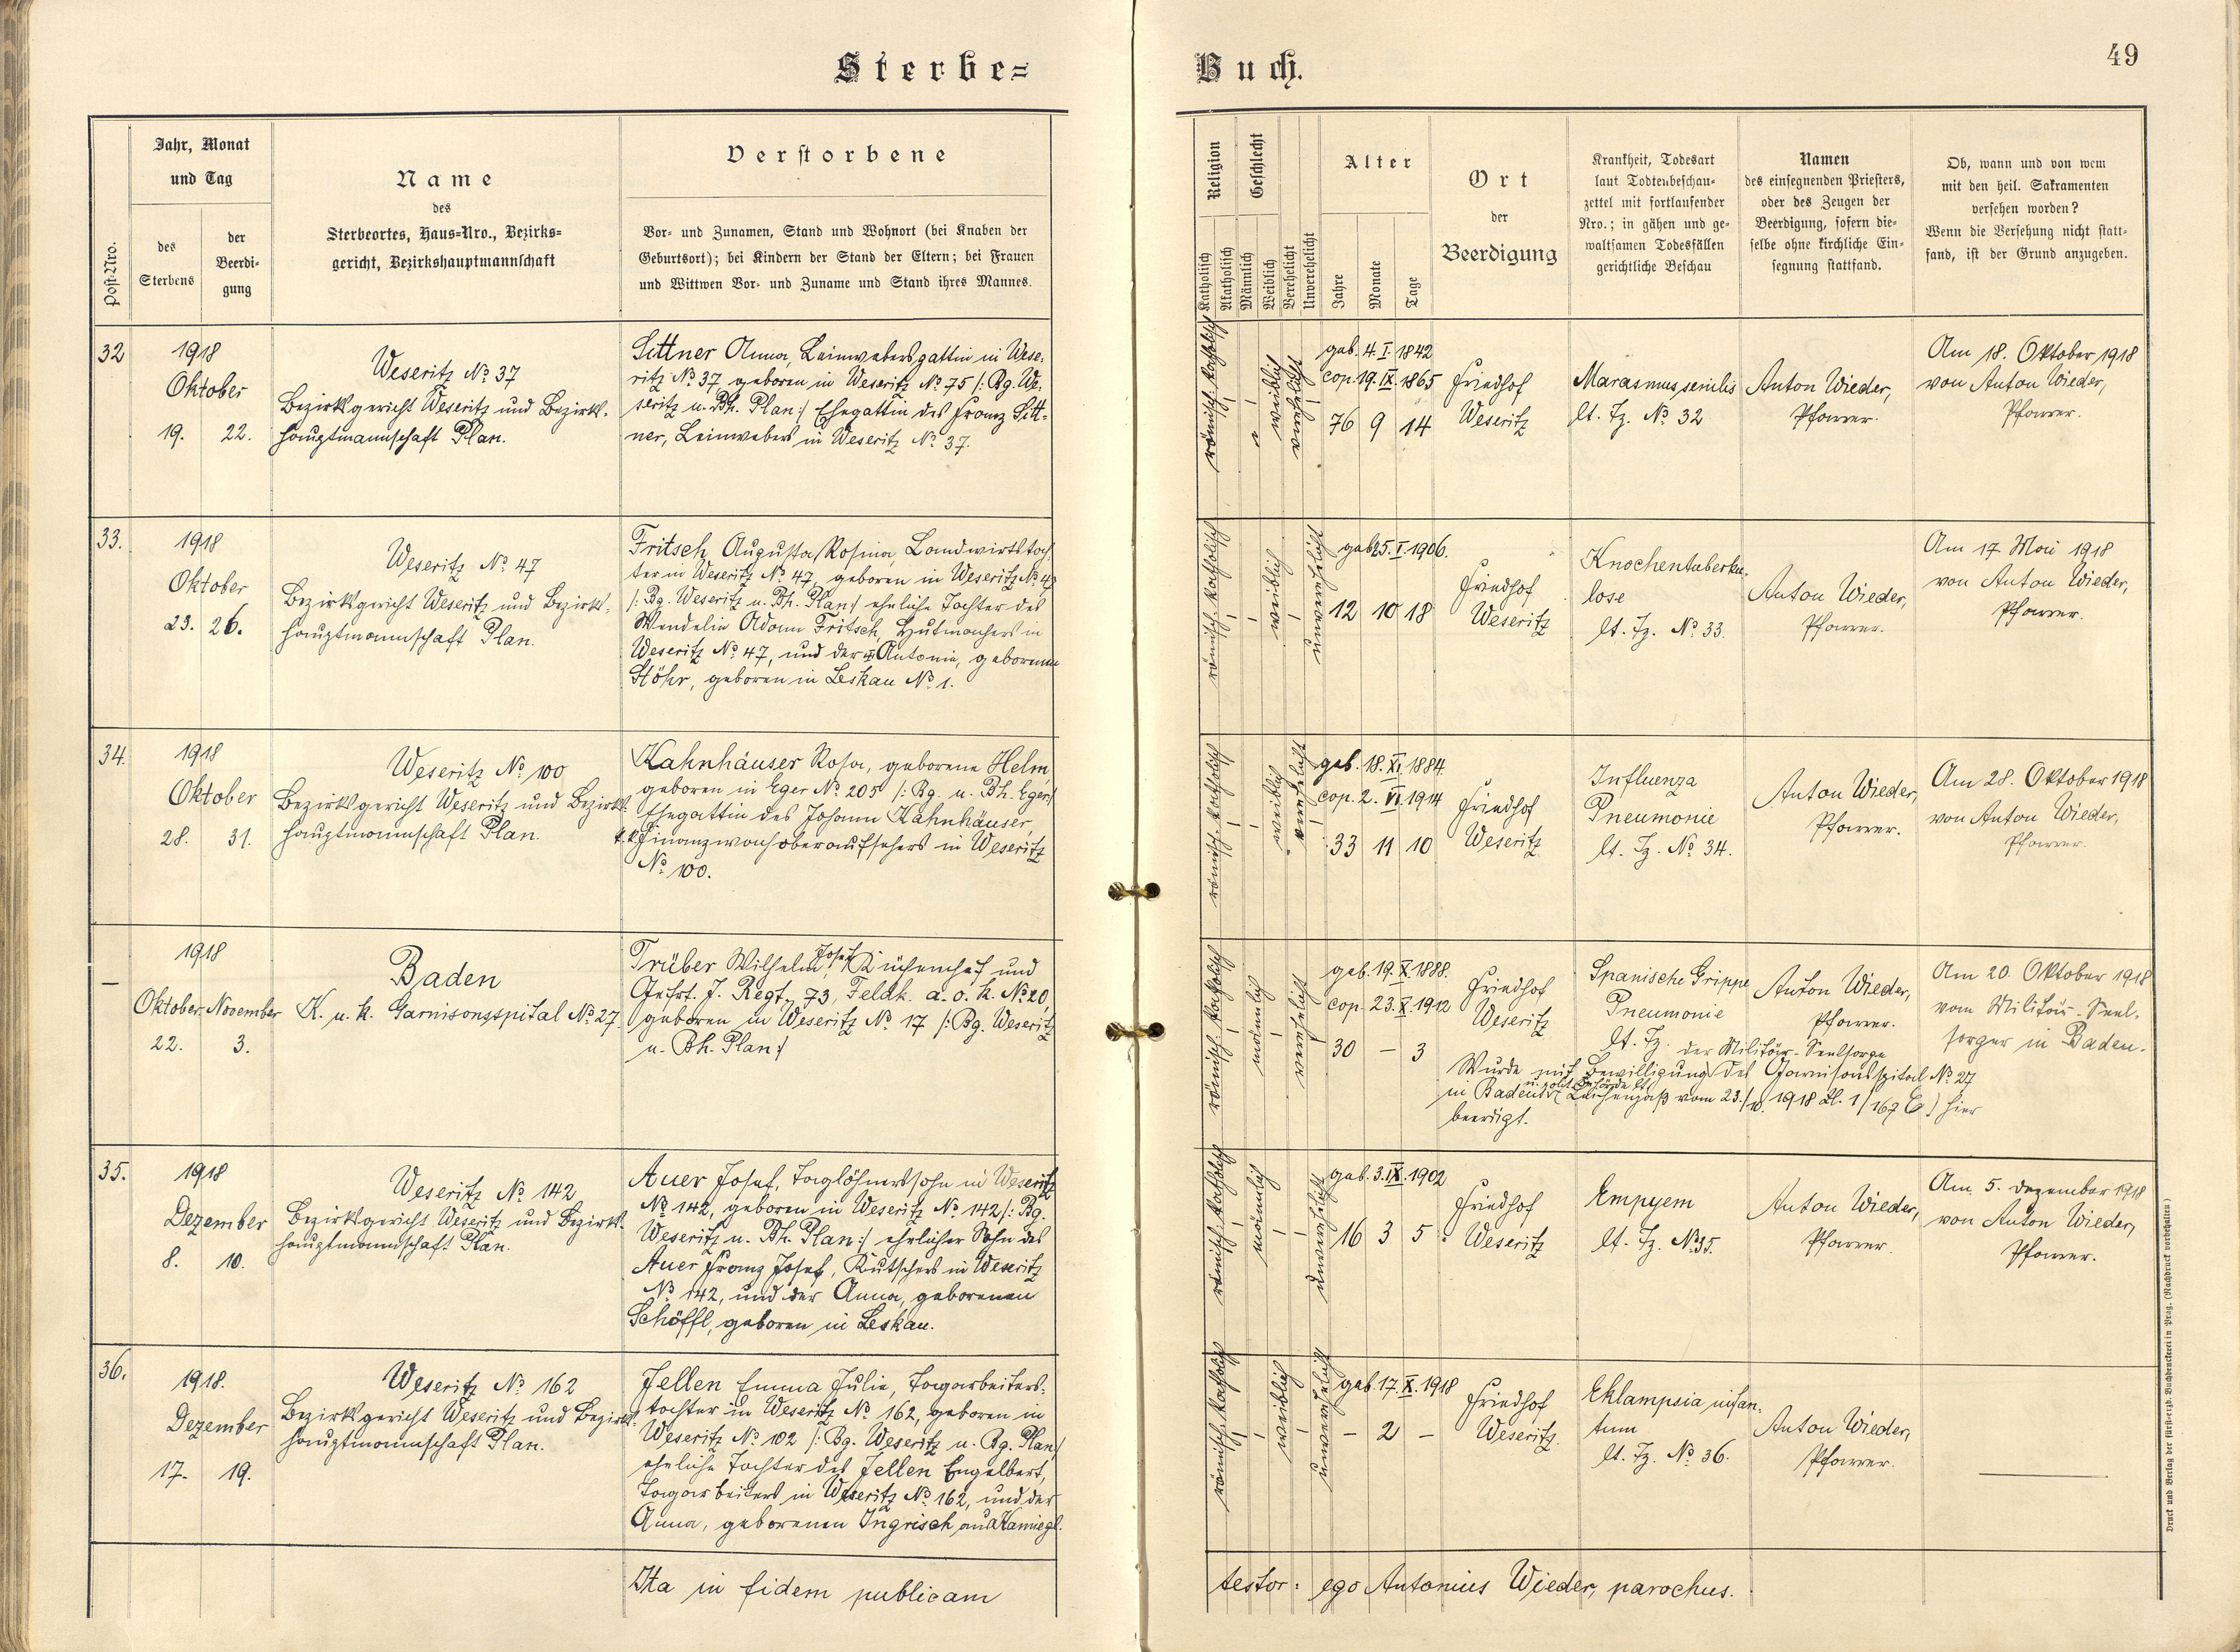 Sterbe=
Buch.
49
Post-Nro.
Jahr, Monat
und Tag
des
Sterbens
der
Beerdi-
gung
Name
des
Sterbeortes, Haus-Nro., Bezirks-
gericht, Bezirkshauptmannschaft
Verstorbene
Vor- und Zunamen, Stand und Wohnort (bei Knaben der
Geburtsort); bei Kindern der Stand der Eltern; bei Frauen
und Wittwen Vor- und Zuname und Stand ihres Mannes.
Religion
Katholisch
Akatholisch
Geschlecht
Männlich
Weiblich
Verehelicht
Unverehelicht
Alter
Jahre
Monate
Tage
Ort
der
Beerdigung
Krankheit, Todesart
laut Todtenbeschau-
zettel mit fortlaufender
Nro.; in gähen und ge-
waltsamen Todesfällen
gerichtliche Beschau
Namen
des einsegnenden Priesters,
oder des Zeugen der
Beerdigung, sofern die-
selbe ohne kirchliche Ein-
segnung stattfand.
Ob, wann und von wem
mit den heil. Sakramenten
versehen worden?
Wenn die Versehung nicht statt-
fand, ist der Grund anzugeben.
32
1918
Oktober
19. 22.
Weseritz No 37
Bezirksgericht Weseritz und Bezirks-
hauptmannschaft Plan.
Sittner Anna, Leinwebersgattin in Wese-
ritz No 37, geboren in Weseritz No 75 /: Bg. We-
seritz u. Bh. Plan :/ Ehegattin des Franz Sitt-
ner, Leinwebers in Weseritz No 37.
römisch-katholisch
weiblich
verehelicht
geb. 4. I. 1842
cop. 19. IX. 1865
76 9 14
Friedhof
Weseritz
Marasmus senilis
lt. Tz. No 32
Anton Wieder,
Pfarrer.
Am 18. Oktober 1918
von Anton Wieder,
Pfarrer.
33.
1918
Oktober
23. 26.
Weseritz No 47
Bezirksgericht Weseritz und Bezirks-
hauptmannschaft Plan.
Fritsch Augusta Rosina, Landwirtstoch
ter in Weseritz No 47, geboren in Weseritz No 47
/: Bg. Weseritz u. Bh. Plan :/ eheliche Tochter des
Wendelin Adam Fritsch, Hutmachers in
Weseritz No 47, und der Antonie, geborenen
Stöhr, geboren in Leskau No 1.
römisch-katholisch
weiblich
unverehelicht
geb. 25. I. 1906.
12 10 18
Friedhof
Weseritz
Knochentuberku-
lose
lt. Tz. No 33.
Anton Wieder,
Pfarrer.
Am 17. Mai 1918
von Anton Wieder,
Pfarrer.
34.
1918
Oktober
28. 31.
Weseritz No 100
Bezirksgericht Weseritz und Bezirks-
hauptmannschaft Plan.
Kahnhäuser Rosa, geborene Helm,
geboren in Eger No 205 /: Bg. u. Bh. Eger :/
Ehegattin des Johann Kahnhäuser,
k. k. Finanzwachoberaufsehers in Weseritz
No 100.
römisch-katholisch
weiblich
verehelicht
geb. 18. XI. 1884.
cop. 2. VI. 1914
33 11 10
Friedhof
Weseritz
Influenza
Pneumonie
lt. Tz. No 34.
Anton Wieder,
Pfarrer.
Am 28. Oktober 1918
von Anton Wieder,
Pfarrer.
—
1918
Oktober. November
22. 3.
Baden
K. u. k. Garnisonsspital No 27.
Trüber Wilhelm Josef, Küchenchef und
Gefrt. J. Regt. 73, Feldk. a. o. k. No 20,
geboren in Weseritz No 17 /: Bg. Weseritz
u. Bh. Plan :/
römisch-katholisch
männlich
verehelicht
geb. 19. X. 1888.
cop. 23. X. 1912
30 — 3
Friedhof
Weseritz
Spanische Grippe
Pneumonie
lt. Tz. der Militär-Seelsorge
Anton Wieder,
Pfarrer.
Am 20. Oktober 1918
vom Militär-Seel-
sorger in Baden.
Wurde mit Bewilligung des Garnisonsspital No 27
in Baden Leichenpaß vom 23./10. 1918 Zl. 1/167 hier
beerdigt.
35.
1918
Dezember
8. 10.
Weseritz No 142
Bezirksgericht Weseritz und Bezirks-
hauptmannschaft Plan.
Auer Josef, Taglöhnerssohn in Weseritz
No 142, geboren in Weseritz No 142 /: Bg.
Weseritz u. Bh. Plan :/ ehelicher Sohn des
Auer Franz Josef, Kutschers in Weseritz
No 142, und der Anna, geborenen
Schöffl, geboren in Leskau.
römisch-katholisch
männlich
unverehelicht
geb. 3. IX. 1902
16 3 5
Friedhof
Weseritz
Empyem
lt. Tz. No 35.
Anton Wieder,
Pfarrer.
Am 5. Dezember 1918
von Anton Wieder,
Pfarrer.
36.
1918.
Dezember
17. 19.
Weseritz No 162
Bezirksgericht Weseritz und Bezirks-
hauptmannschaft Plan.
Jellen Emma Julie, Tagarbeiters-
tochter in Weseritz No 162, geboren in
Weseritz No 102 /: Bg. Weseritz u. Bg. Plan :/
eheliche Tochter des Jellen Engelbert,
Tagarbeiters in Weseritz No 162, und der
Anna, geborenen Ingrisch aus Hamiegl.
römisch-katholisch
weiblich
unverehelicht
geb. 17. X. 1918
— 2 —
Friedhof
Weseritz.
Eklampsia infan-
tum
lt. Tz. No 36.
Anton Wieder,
Pfarrer.
Ita in fidem publicam
testor: ego Antonius Wieder, parochus.
Druck und Verlag der fürst-erzb. Buchdruckerei in Prag. (Nachdruck vorbehalten.)